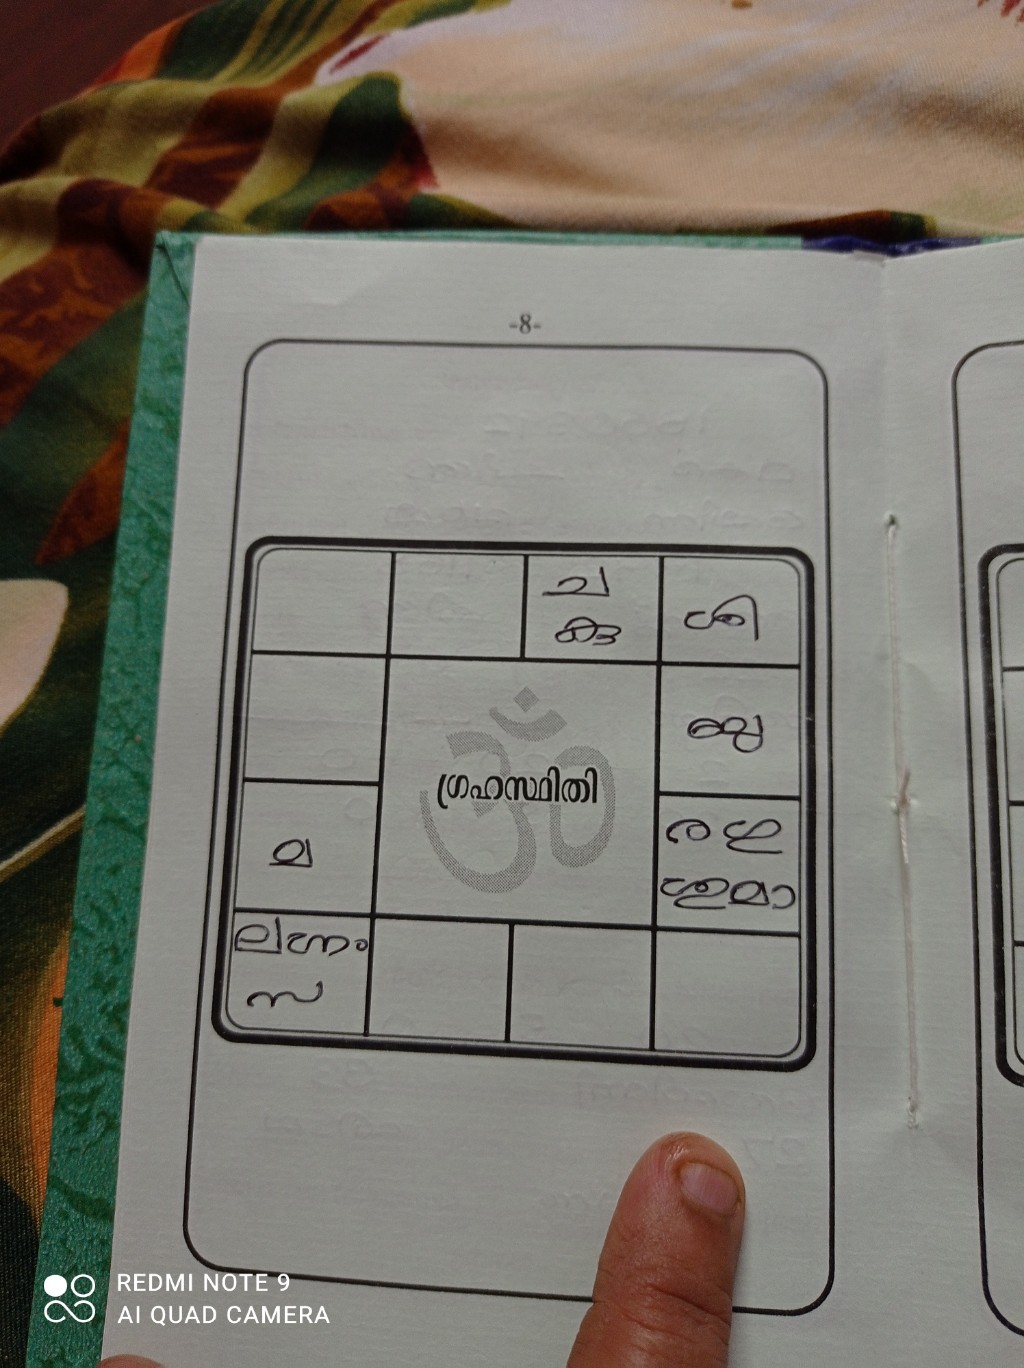 -8-
ച
കു
ശി
ഗ്രഹസ്ഥിതി
മ
ലഗ്നം
സ
REDMI NOTE 9
AI QUAD CAMERA